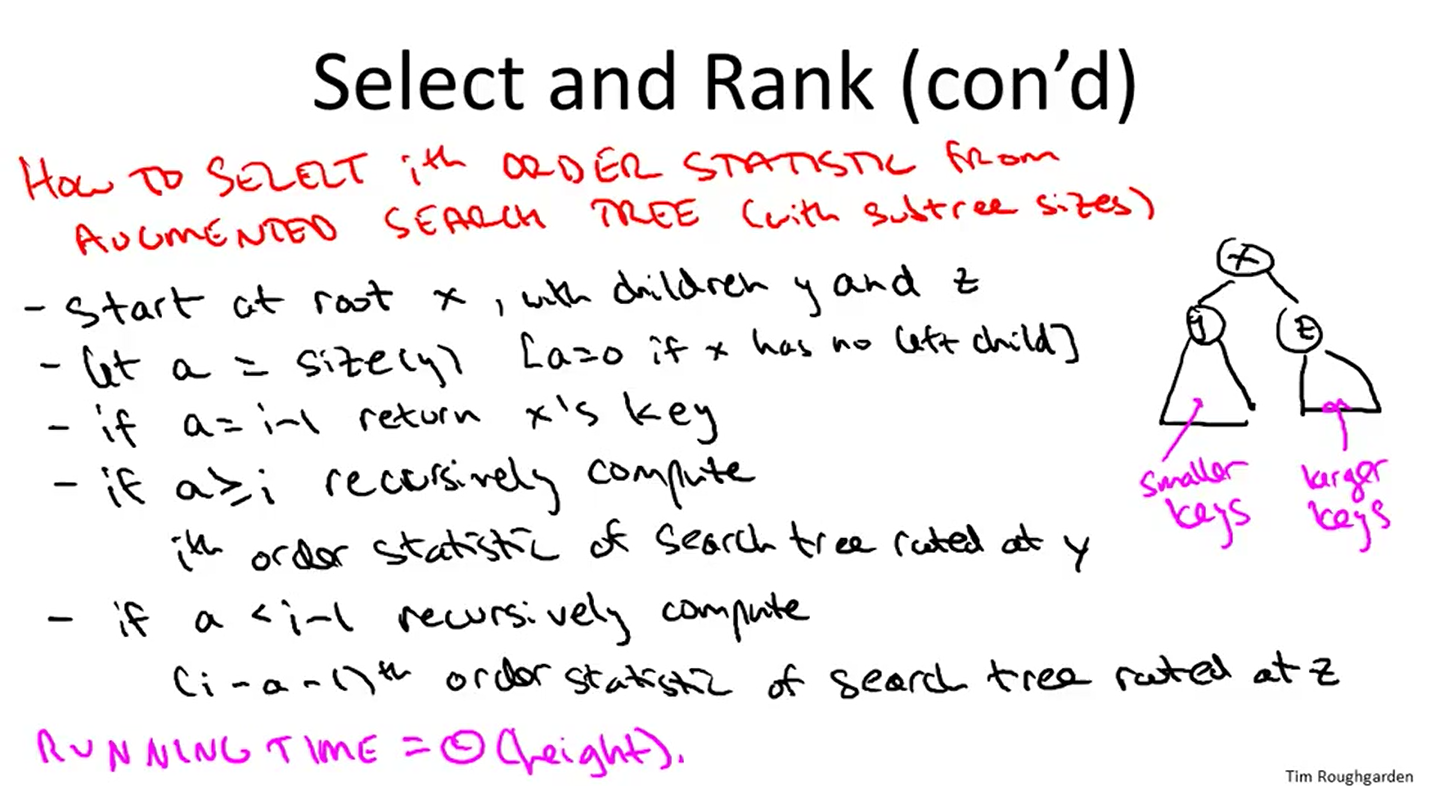 Select and Rank (con’d)
HOW TO SELECT ith ORDER STATISTIC FROM
AUGMENTED SEARCH TREE (with subtree sizes)
- start at root x, with children y and z
- let a = size(y) [a=0 if x has no left child]
- if a = i-1 return x's key
- if a ≥ i recursively compute
ith order statistic of search tree rooted at y
- if a < i-1 recursively compute
(i-a-1)th order statistic of search tree rooted at z
RUNNING TIME = Θ(height).
x
y z
smaller keys
larger keys
Tim Roughgarden